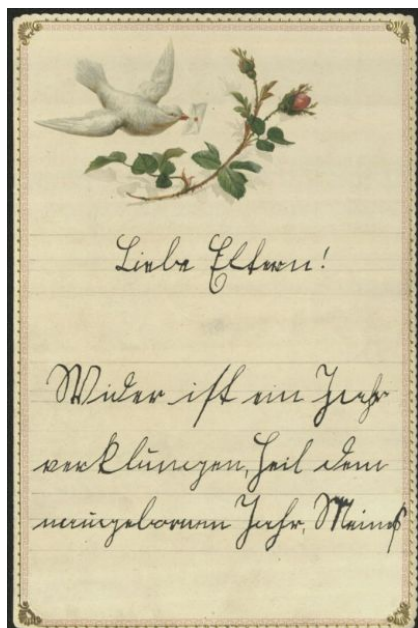 Liebe Eltern!
Wider ist ein Jahr
verklungen, Heil dem
neugebornen Jahr, Meines